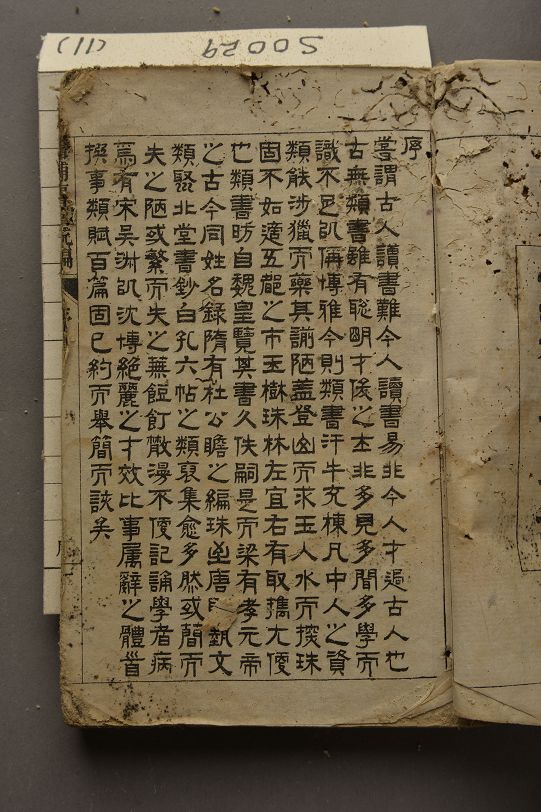 S0029
(11)
序
嘗謂古人讀書難今人讀書易非今人才過古人也
古無類書雖有聡明才俊之士非多見多聞多學而
識不足以稱博雅今則類書汗牛充棟凡中人之資
類能涉獵而藥其謭陋蓋登山而求玉入水而探珠
固不如適五都之市玉樹珠林左宜右有取攜尤便
也類書昉自魏皇覽其書久佚嗣是而梁有孝元帝
之古今同姓名錄隋有杜公瞻之編珠迨唐 藝文
類聚北堂書鈔白孔六帖之類裒集愈多然或簡而
失之陋或繁而失之蕪餖飣散漫不便記誦學者病
焉有宋吳淑以沈博絕麗之才效比事厲辭之體首
撰事類賦百篇固已約而舉簡而該矣
序